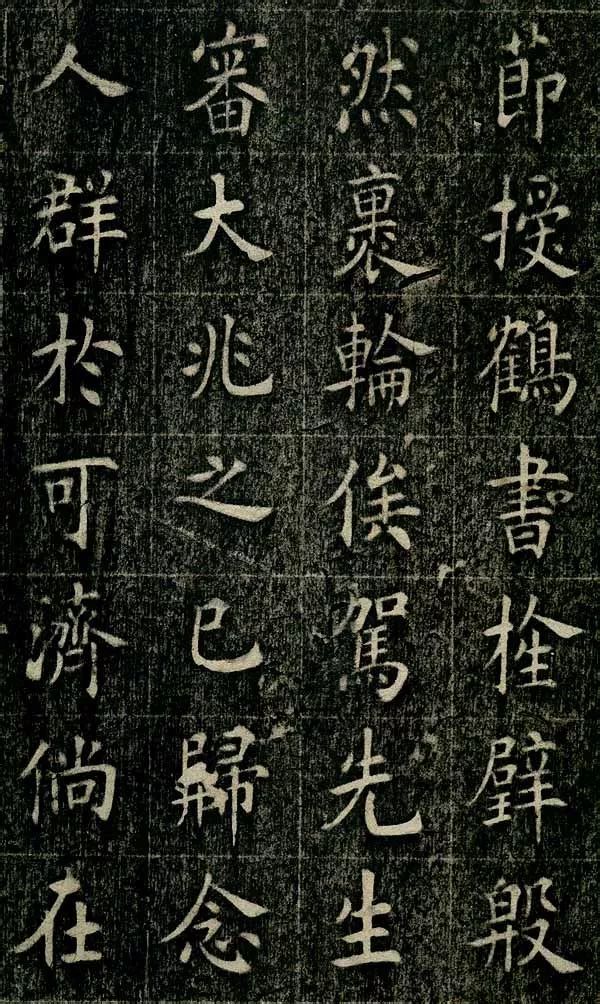 節授鶴書栓璧般
然裹輪俟駕先生
審大兆之已歸念
人群於可濟倘在